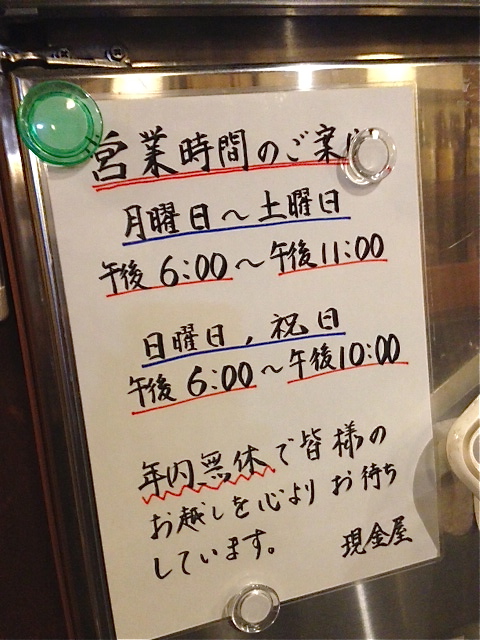 営業時間のご案内
月曜日～土曜日
午後6:00～午後11:00
日曜日，祝日
午後6:00～午後10:00
年内無休で皆様の
お越しを心よりお待ち
しています。
現金屋